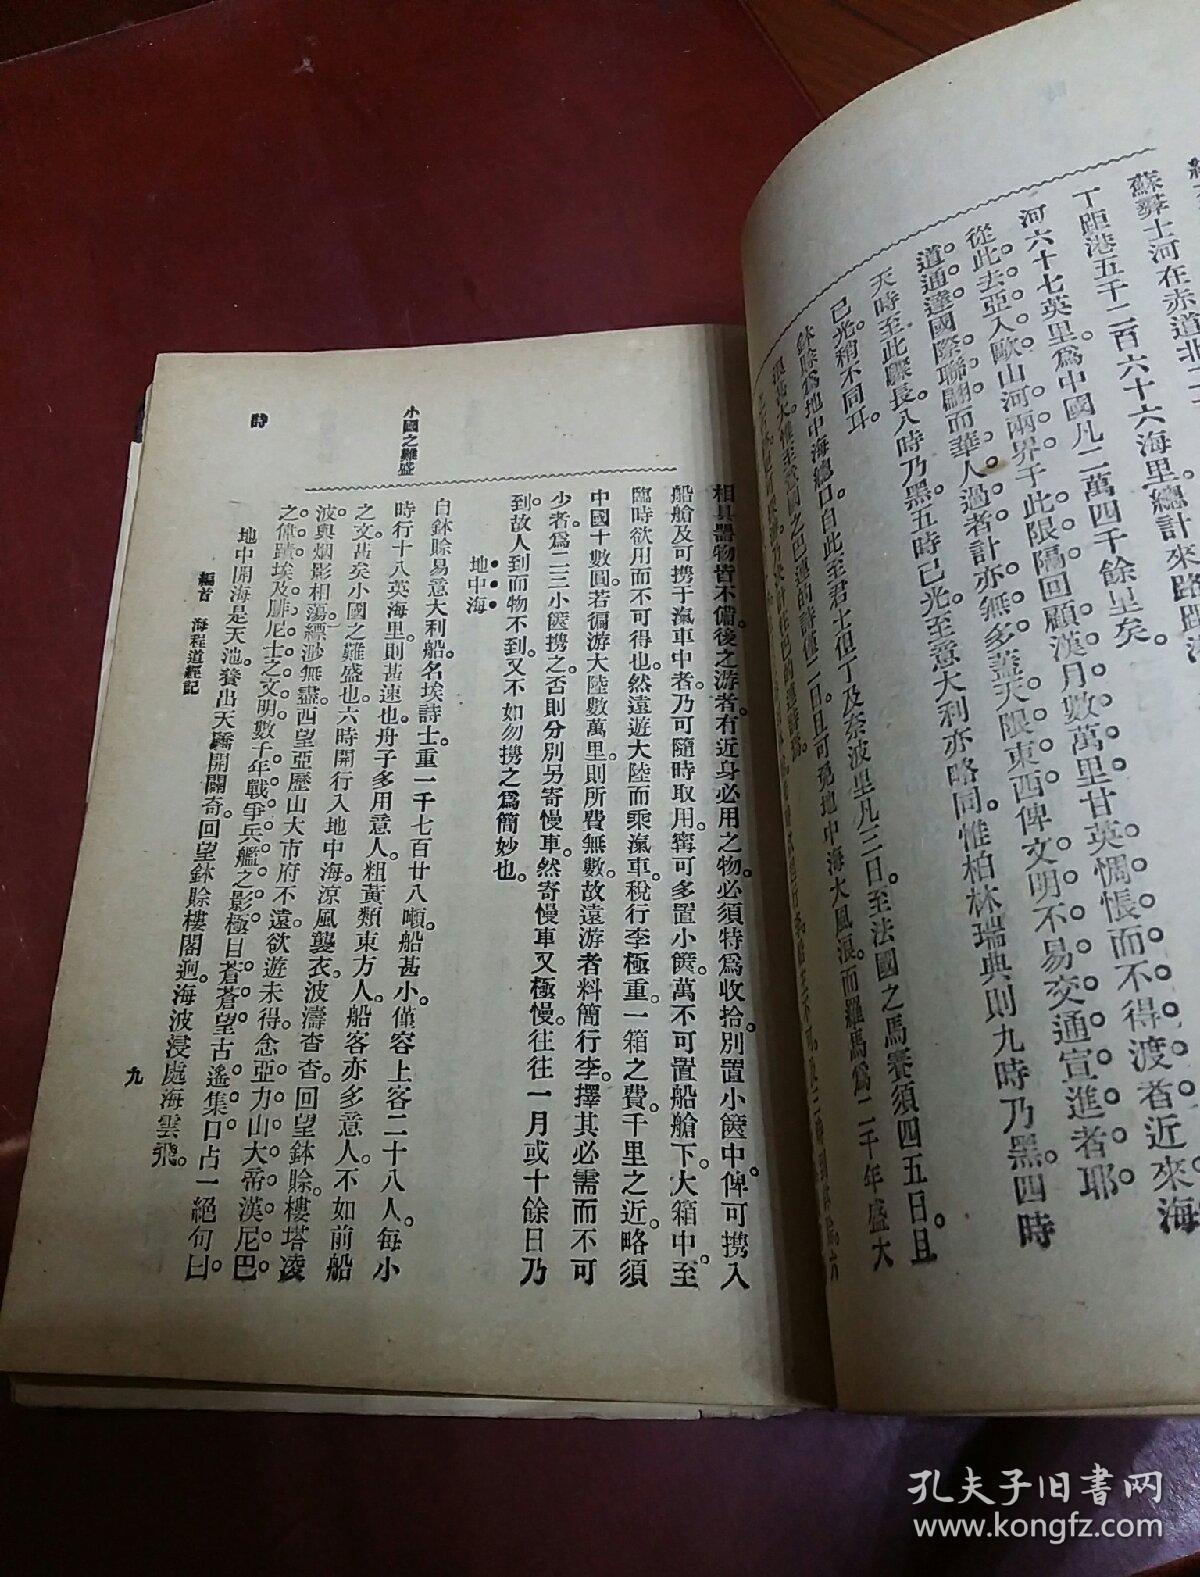 蘇彝士河在赤道北二
丁距港五千二百六十六海里。總計來路
河六十七英里。爲中國凡二萬四千餘里矣。
從此去亞入歐。山河兩界于此限隔。回顧漢月數萬里。甘英惆悵而不得渡者。近來海
道通達。國際聯翩。而華人過者。計亦無多。蓋天限東西。俾文明不易交通宣進者耶。
天時至此驟長。八時乃黑。五時已光。至意大利亦略同。惟柏林瑞典則九時乃黑。四時
已光。稍不同耳。
鉢賒爲地中海總口。自此至君士但丁及奈波里凡三日。至法國之馬賽須四五日。且
相具器物皆不備。後之游者。有近身必用之物。必須特爲收拾。別置小篋中。俾可携入
船艙及可携于滊車中者。乃可隨時取用。寗可多置小篋。萬不可置船艙下。大箱中。至
臨時欲用而不可得也。然遠遊大陸而乘滊車。稅行李極重。一箱之費。千里之近。略須
中國十數圓。若徧游大陸數萬里。則所費無數。故遠游者料簡行李。擇其必需而不可
少者。爲二三小篋携之。否則分別另寄慢車。然寄慢車又極慢。往往一月或十餘日乃
到。故人到而物不到。又不如勿携之爲簡妙也。
地中海
自鉢賒易意大利船名埃詩士。重一千七百廿八噸。船甚小。僅容上客二十八人。每小
時行十八英海里。則甚速也。舟子多用意人。粗黃類東方人。船客亦多意人。不如前船
之文。甚矣小國之難盛也。六時開行。入地中海。涼風襲衣。波濤杳杳。回望鉢賒。樓塔凌
波。與烟影相蕩。縹渺無盡。西望亞歷山大市府不遠。欲遊未得。念亞力山大帝漢尼巴
之偉蹟。埃及腓尼士之文明。數千年戰爭兵艦之影。極目蒼蒼。望古遙集。口占一絕句曰。
地中開海是天池。養出天驕開闢奇。回望鉢賒樓閣迥。海波浸處海雲飛。
小國之難盛
編首 海程道經記
九
孔夫子旧书网
www.kongfz.com